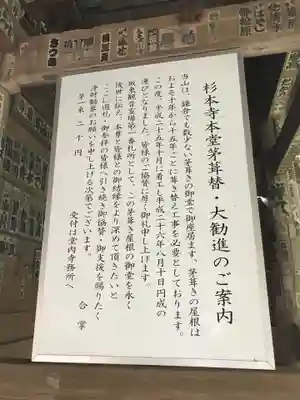 杉本寺本堂茅葺替・大勧進のご案内
当山は、鎌倉でも数少ない茅葺きの御堂で御座居ます。茅葺きの屋根は
およそ十年から十五年ごとに葺き替え工事を必要としております。
この度、平成二十五年十月に着工し平成二十六年八月十日円成の
運びとなりました。皆様のご協賛に厚く御礼申し上げます。
坂東観音霊場第一番札所として、この茅葺き屋根の御堂を永く
後世に伝え、本尊と皆様との御結縁をより深めて頂きたいと
ここに巡礼・御参拝の皆様へ引き続き御協賛・御支援を賜りたく
浄財勧募のお願いを申し上げる次第でございます。
茅一束 二千円
受付は堂内寺務所へ
合掌